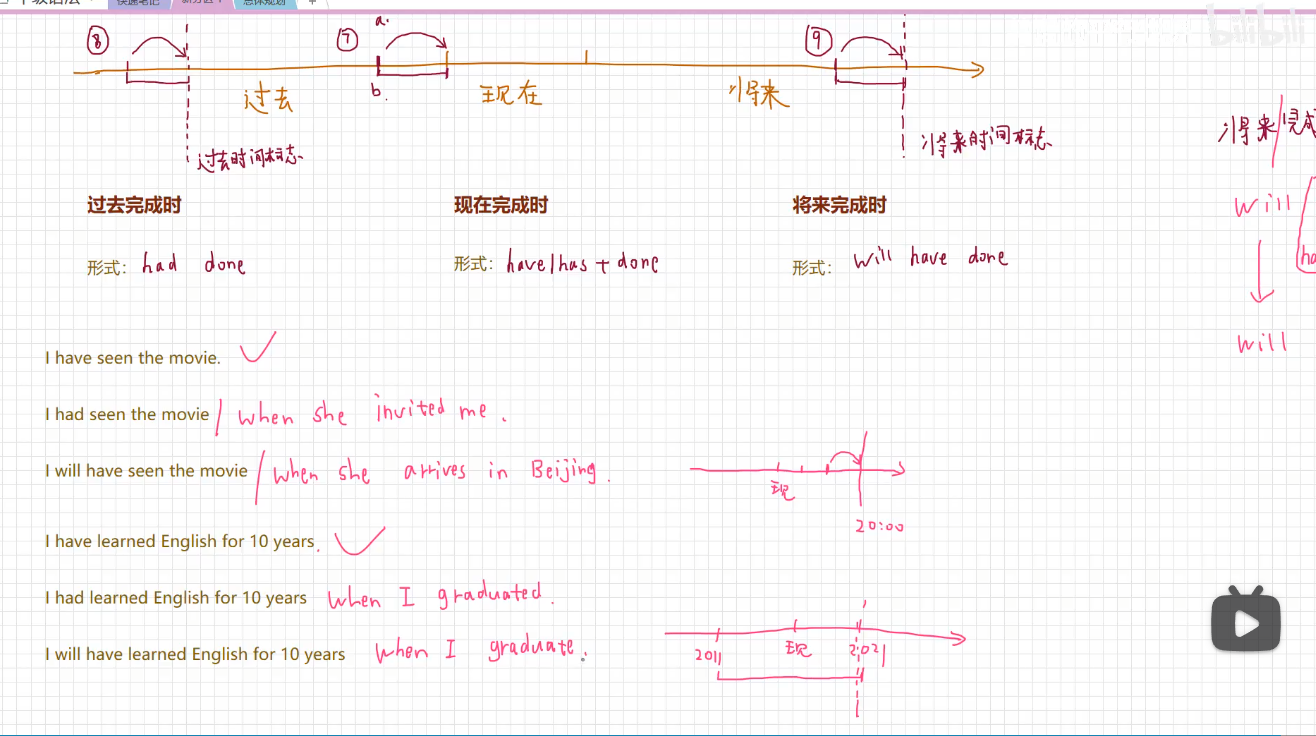 快速笔记
总体规划
bilibili
⑧
⑦
a.
⑨
b.
过去
现在
将来
过去时间标志
将来时间标志
将来
will
will
过去完成时
现在完成时
将来完成时
形式： had done
形式： have/has + done
形式： will have done
I have seen the movie.
I had seen the movie when she invited me.
I will have seen the movie when she arrives in Beijing.
现
20:00
I have learned English for 10 years.
I had learned English for 10 years when I graduated.
I will have learned English for 10 years when I graduate.
2011
现
2021